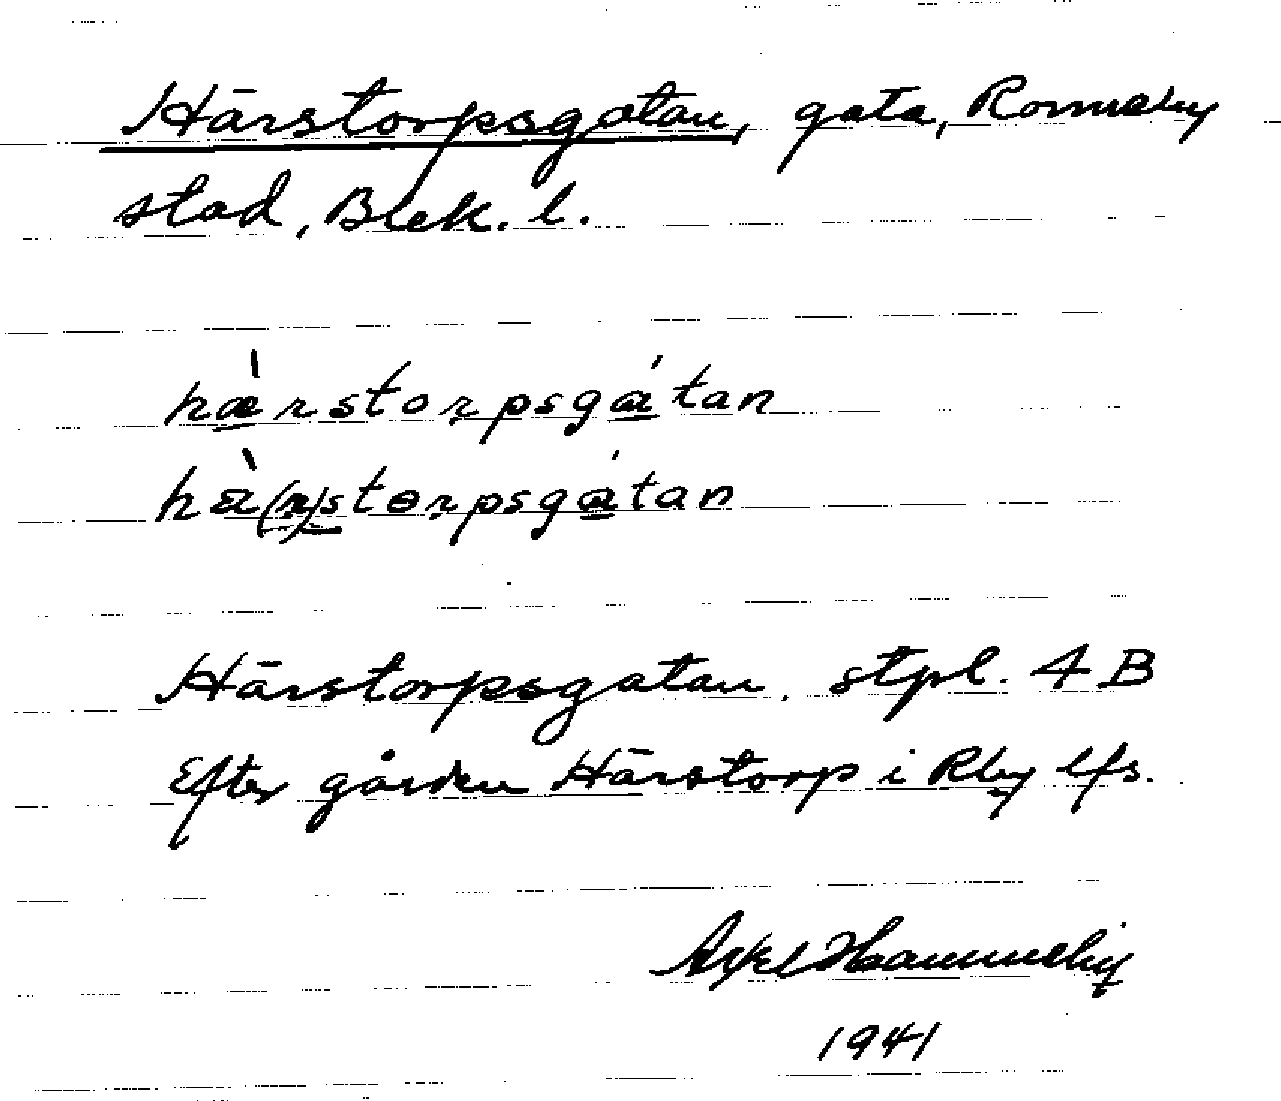 Härstorpsgatan, gata, Ronneby
stad, Blek. l.
hæ̀rstorpsgátan
hä̀(r)storpsgátan
Härstorpsgatan. stpl. 4 B
Efter gården Härstorp i Rby lfs.
Axel Hammeby
1941